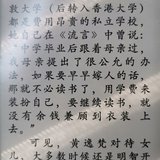 敦大学（后转入香港大学）
都是费用昂贵的私立学校，
她自己在《流言》中曾说：
“中学毕业后跟着母亲过，
我母亲提出了很公允的办
法，如果要早早嫁人的话，
那就不必读书了，用学费来
装扮自己，要继续读书，就
没有余钱兼顾到衣装上
去。”
可见，黄逸梵对待
女儿，大多数时候还是明智